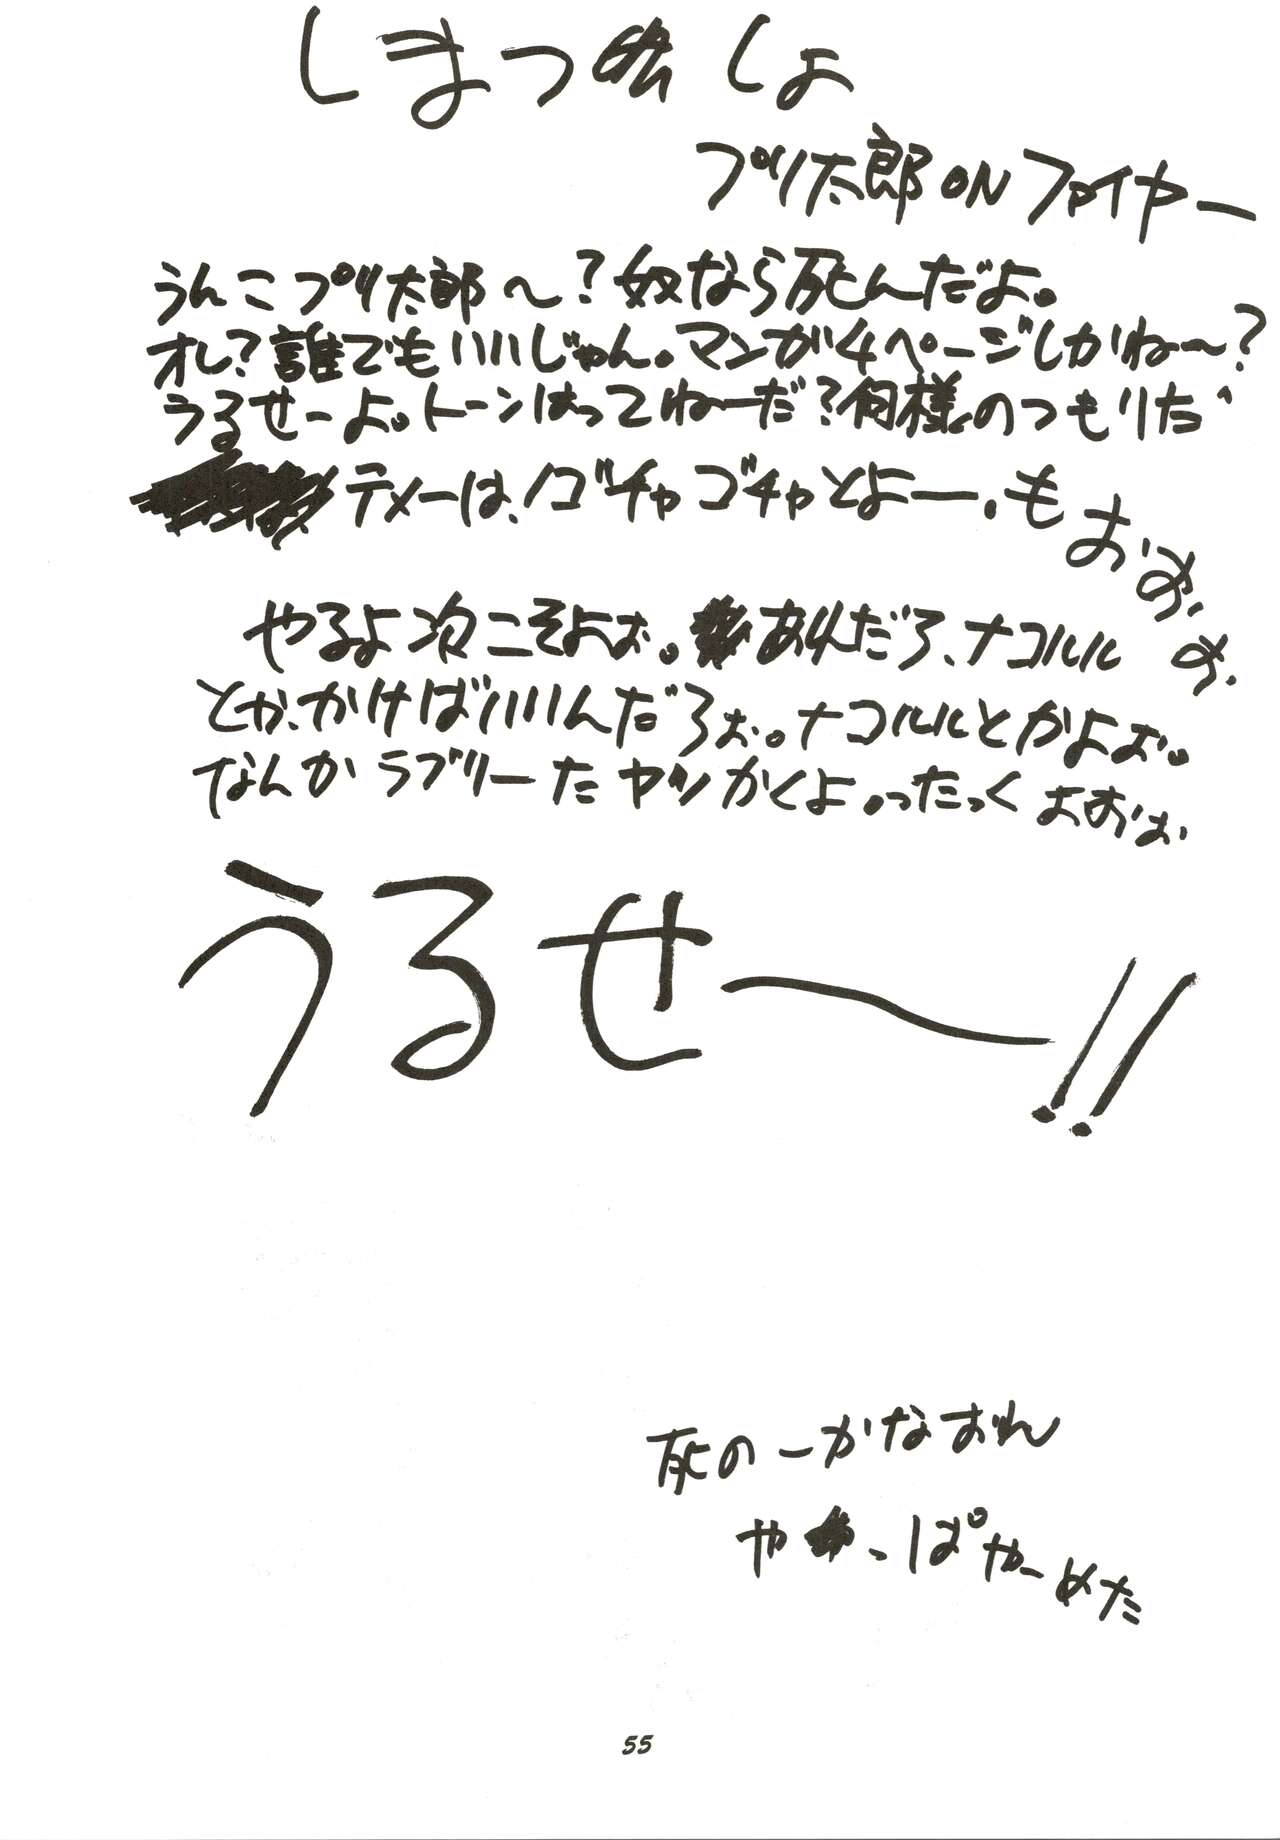 しまつしょ
プリ太郎ONファイヤー
うんこプリ太郎〜?奴なら死んだよ。
オレ?誰でもいいじゃん。マンガ4ページしかね〜?
うるせーよ。トーンはってねーだ?何様のつもりだ
テメーは、ゴチャゴチャとよー。もおぉぉ
やるよ次こそよぉ。あれだろ、ナコルル
とか、かけばいいんだろぉ。ナコルルとかよぉ。
なんかラブリーなヤツかくよ。ったくよおぉ
うるせ〜!!
死のーかなおれ
やっぱやーめた
55